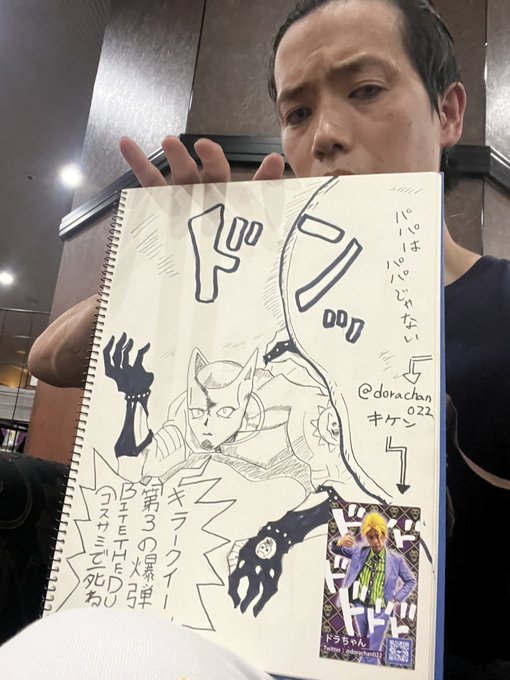 ド
ン
パパは
パパじゃない
@dorachan
022
キケン
キラークイー
第3の爆弾
BITE THE DU
コスサミで死ね
ド
ド
ド
ド
ド
ドラちゃん
Twitter : @dorachan022